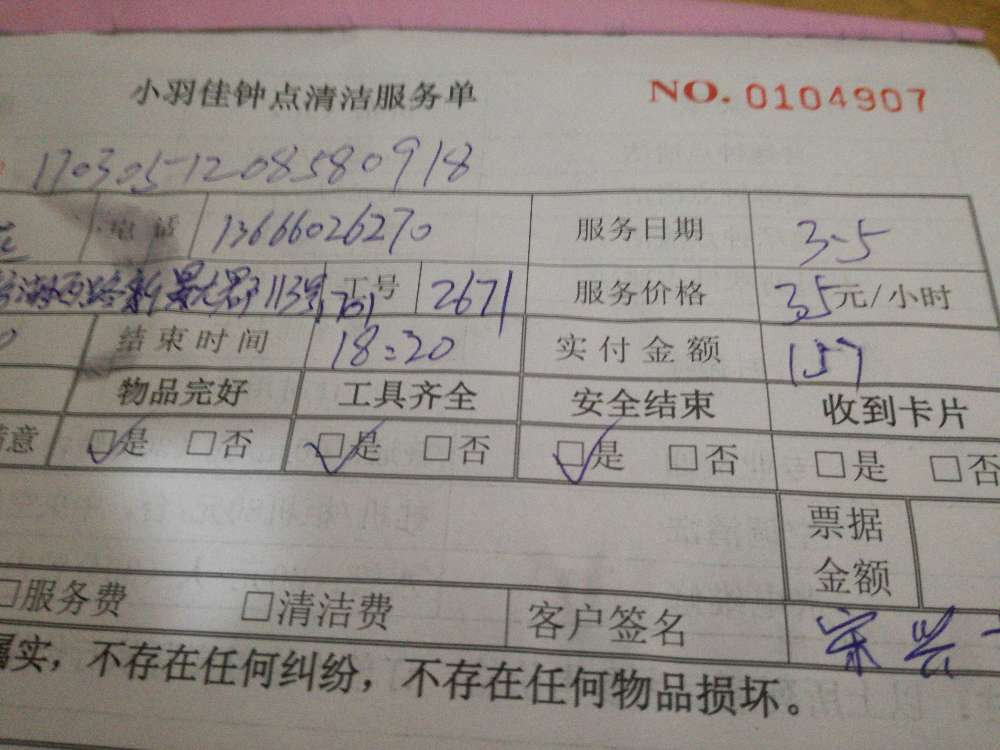 小羽佳钟点清洁服务单 NO. 0104907
170305-1208580918
电话 13666026270 服务日期 3-5
113号701 工号 2671 服务价格 35元/小时
结束时间 18:20 实付金额 157
物品完好 工具齐全 安全结束 收到卡片
意 ☑是 □否 ☑是 □否 ☑是 □否 □是 □否
票据
金额
□服务费 □清洁费 客户签名
属实，不存在任何纠纷，不存在任何物品损坏。